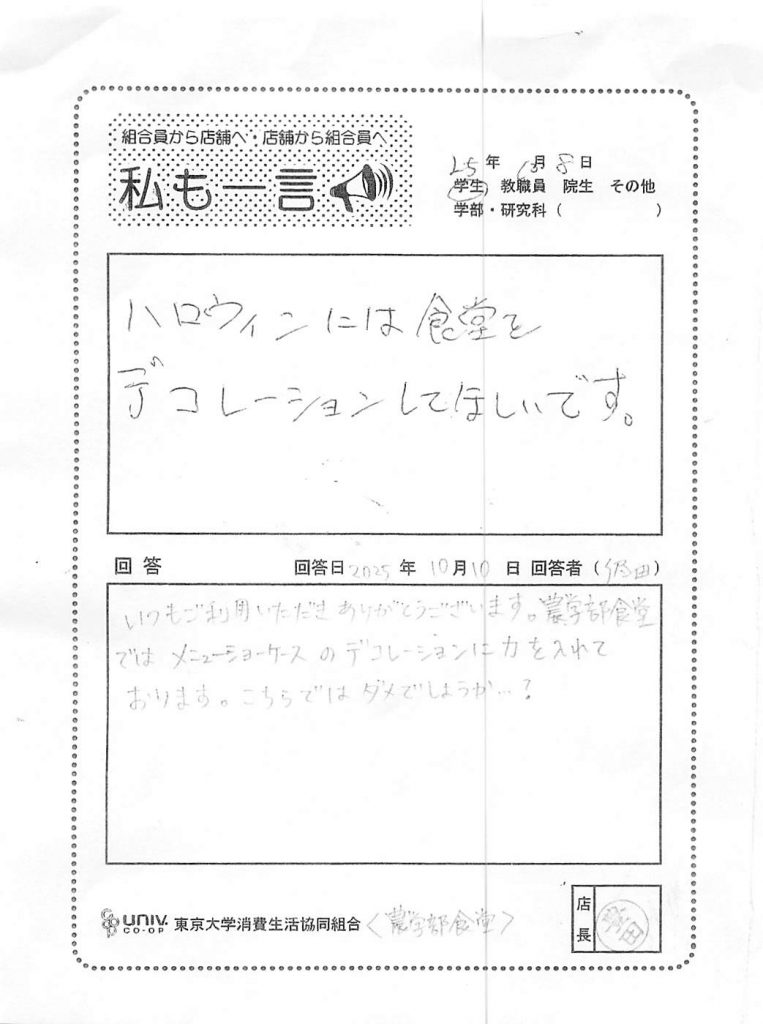 組合員から店舗へ・店舗から組合員へ
私も一言
25年 月8日
学生 教職員 院生 その他
学部・研究科( )
ハロウィンには食堂を
デコレーションしてほしいです。
回答 回答日2025年10月10日 回答者( 田)
いつもご利用いただきありがとうございます。農学部食堂
では メニューショーケースのデコレーションに力を入れて
おります。こちらではダメでしょうか…?
UNIV. CO-OP 東京大学消費生活協同組合〈農学部食堂〉
店長